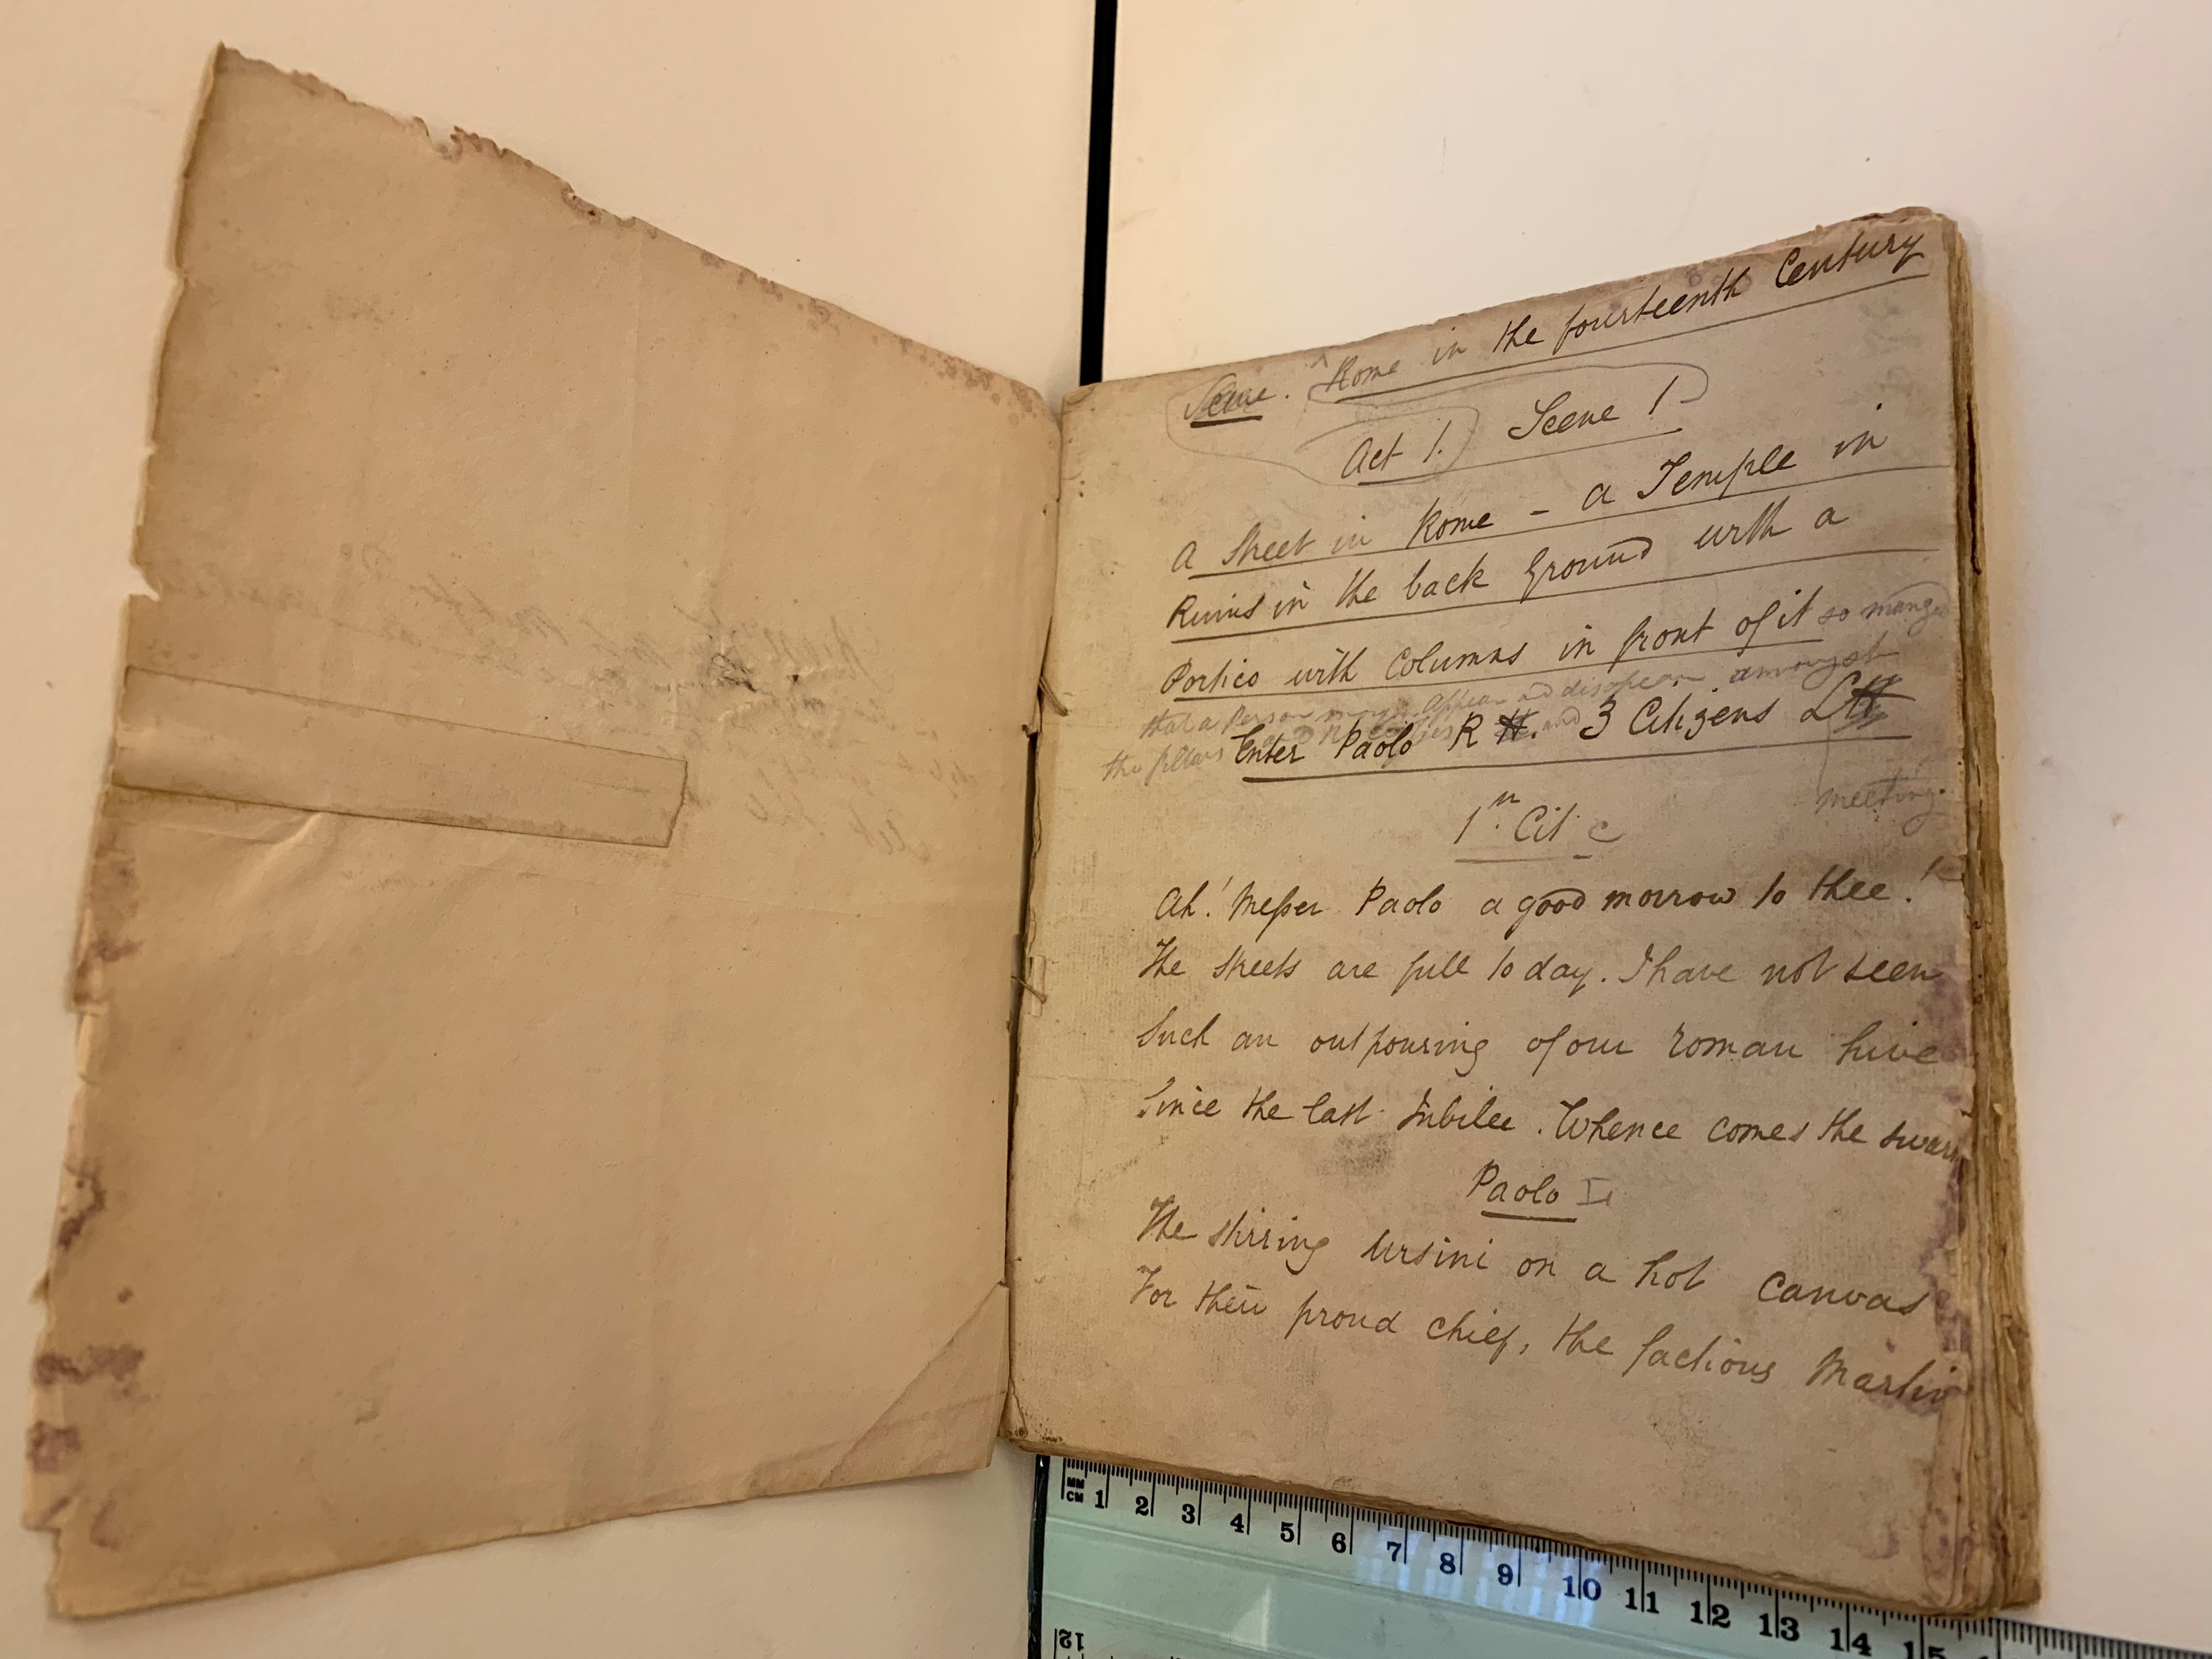 Scene. Rome in the fourteenth Century
Act 1. Scene 1
A Street in Rome - a Temple in
Ruins in the back Ground with a
Portico with Columns in front of it so manged
that a Person may appear and disappear amongst
the pillars
Enter Paolo R H. and 3 Citizens L H
meeting.
1st. Cit. C
Ah! Messer Paolo a good morrow to thee!
The streets are full to day. I have not seen
Such an outpouring of our roman hive
Since the last Jubilee. Whence comes the swarm
Paolo
The stirring Ursini on a hot canvas
For their proud chief, the factious Martin
MM
CM 1 2 3 4 5 6 7 8 9 10 11 12 13 14 15
12